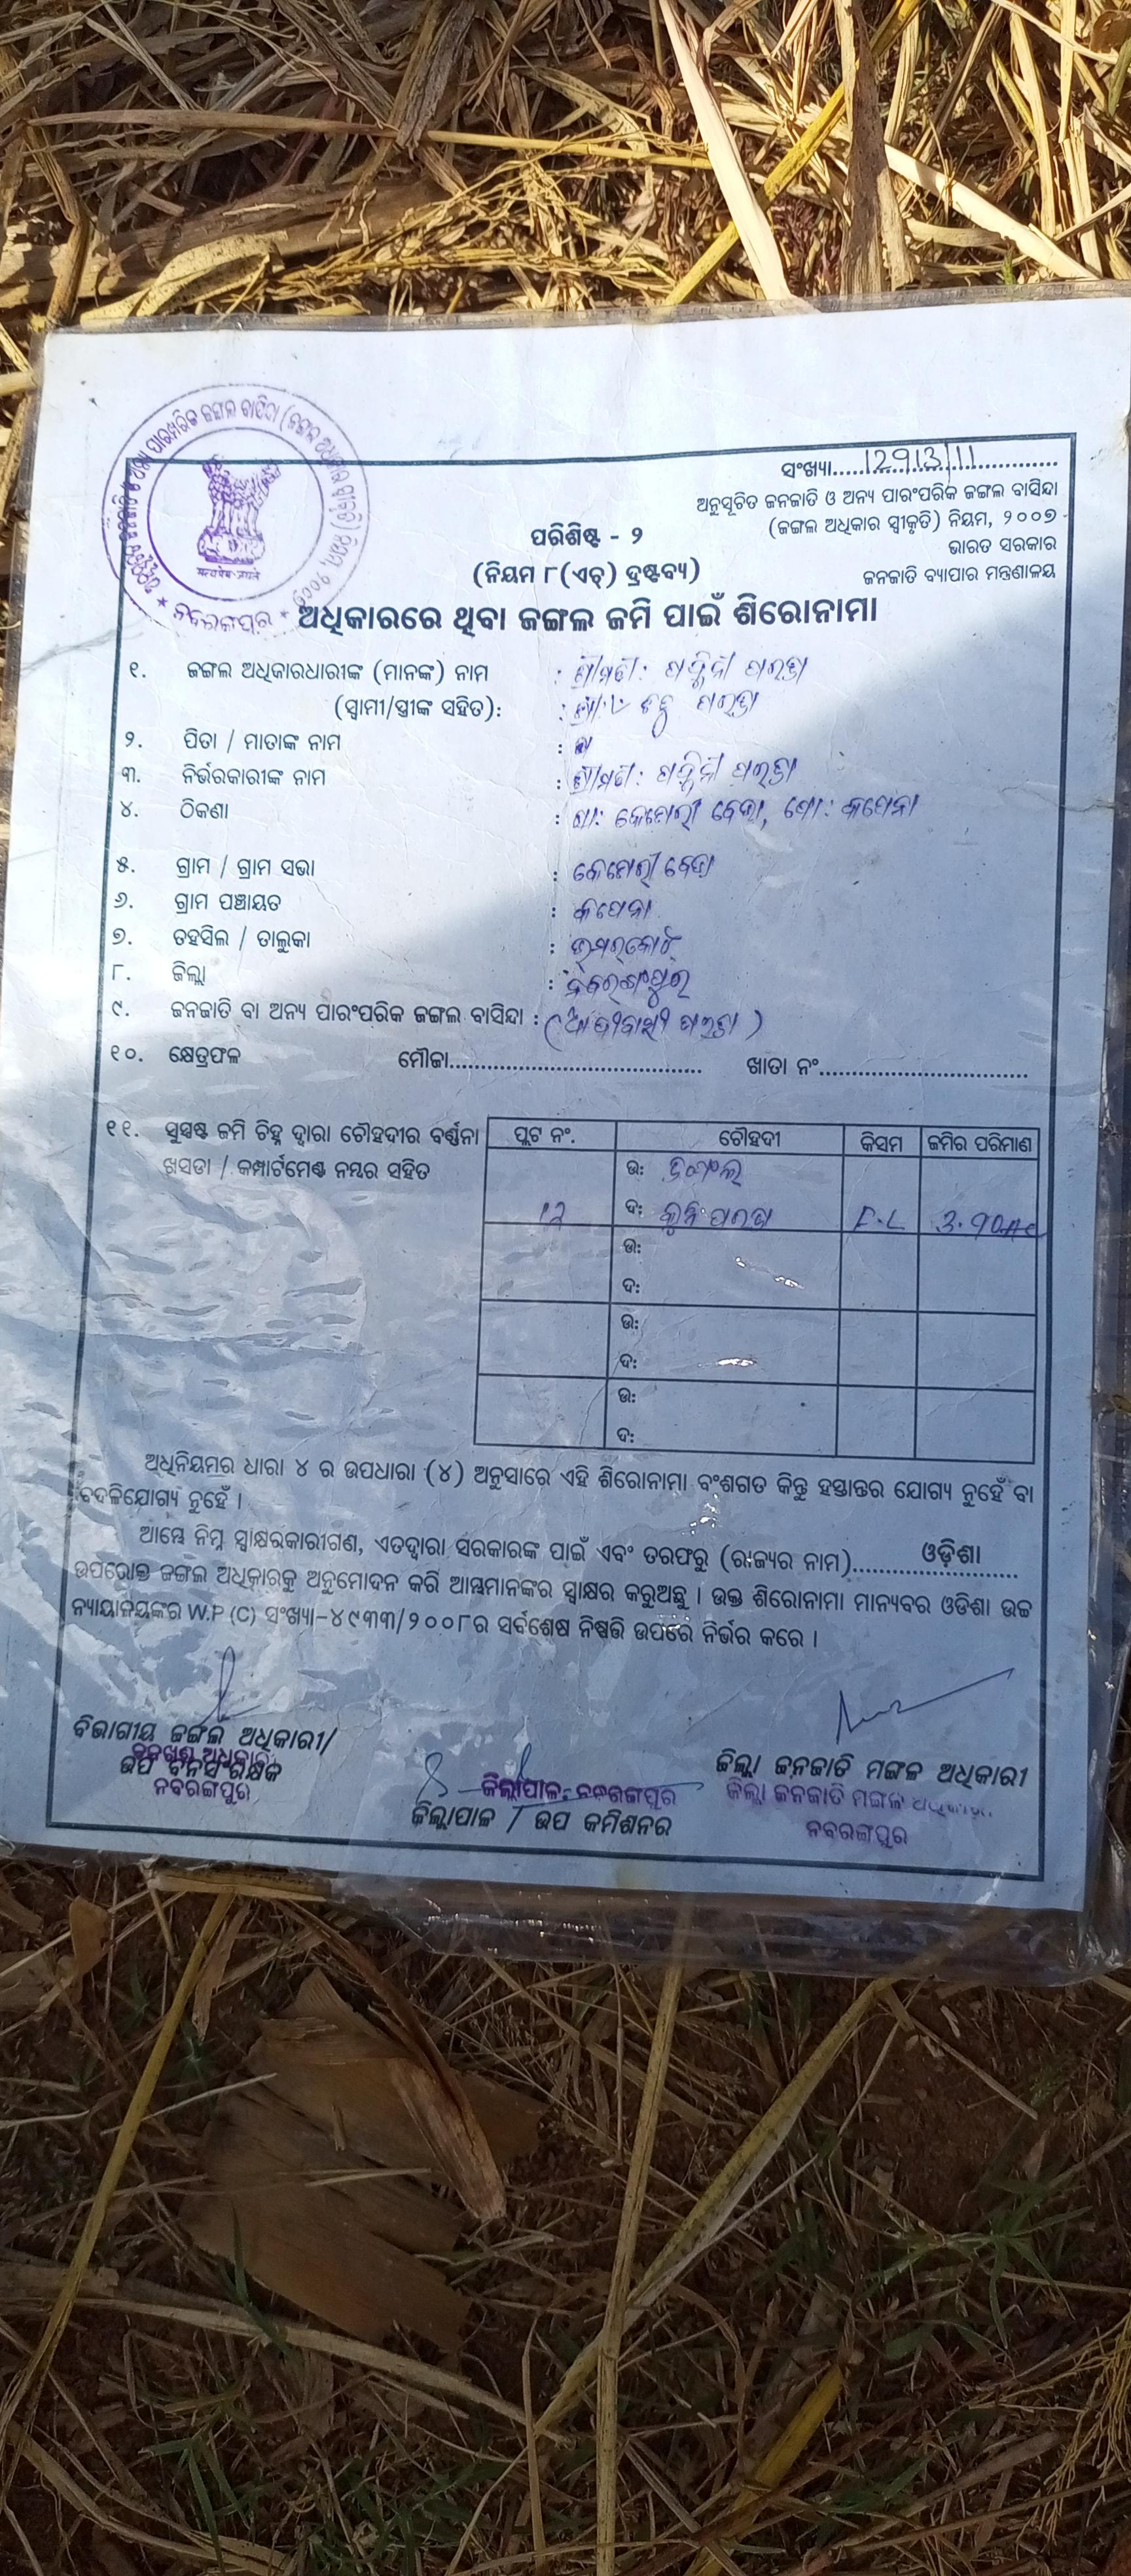 ସଂଖ୍ୟା.....12913/11
ଅନୁସୂଚିତ ଜନଜାତି ଓ ଅନ୍ୟ ପାରଂପରିକ ଜଙ୍ଗଲ ବାସିନ୍ଦା
(ଜଙ୍ଗଲ ଅଧିକାର ସ୍ୱୀକୃତି) ନିୟମ, ୨୦୦୭
ଭାରତ ସରକାର
ଜନଜାତି ବ୍ୟାପାର ମନ୍ତ୍ରଣାଳୟ
ପରିଶିଷ୍ଟ - ୨
(ନିୟମ ୮(ଏଚ୍) ଦ୍ରଷ୍ଟବ୍ୟ)
ନବରଙ୍ଗପୁର
ଅଧିକାରରେ ଥିବା ଜଙ୍ଗଲ ଜମି ପାଇଁ ଶିରୋନାମା
୧. ଜଙ୍ଗଲ ଅଧିକାରଧାରୀଙ୍କ (ମାନଙ୍କ) ନାମ : ଶ୍ରୀମତୀ:
(ସ୍ୱାମୀ/ସ୍ତ୍ରୀଙ୍କ ସହିତ):
୨. ପିତା / ମାତାଙ୍କ ନାମ :
୩. ନିର୍ଭରକାରୀଙ୍କ ନାମ : ଶ୍ରୀମତୀ:
୪. ଠିକଣା :
୫. ଗ୍ରାମ / ଗ୍ରାମ ସଭା :
୬. ଗ୍ରାମ ପଞ୍ଚାୟତ :
୭. ତହସିଲ / ତାଲୁକା : ଉମରକୋଟ୍
୮. ଜିଲ୍ଲା : ନବରଂଗପୁର
୯. ଜନଜାତି ବା ଅନ୍ୟ ପାରଂପରିକ ଜଙ୍ଗଲ ବାସିନ୍ଦା :
୧୦. କ୍ଷେତ୍ରଫଳ ମୌଜା........ ଖାତା ନଂ........
୧୧. ସୁସ୍ପଷ୍ଟ ଜମି ଚିହ୍ନ ଦ୍ୱାରା ଚୌହଦୀର ବର୍ଣ୍ଣନା
ଖସଡା / କମ୍ପାର୍ଟମେଣ୍ଟ ନମ୍ବର ସହିତ
ପ୍ଲଟ ନଂ. ଚୌହଦୀ କିସମ ଜମିର ପରିମାଣ
ଉ: ଜଙ୍ଗଲ
12 ଦ: F.L
ଉ:
ଦ:
ଉ:
ଦ:
ଉ:
ଦ:
ଅଧିନିୟମର ଧାରା ୪ ର ଉପଧାରା (୪) ଅନୁସାରେ ଏହି ଶିରୋନାମା ବଂଶଗତ କିନ୍ତୁ ହସ୍ତାନ୍ତର ଯୋଗ୍ୟ ନୁହେଁ ବା
ବଦଳିଯୋଗ୍ୟ ନୁହେଁ ।
ଆମ୍ଭେ ନିମ୍ନ ସ୍ୱାକ୍ଷରକାରୀଗଣ, ଏତଦ୍ୱାରା ସରକାରଙ୍କ ପାଇଁ ଏବଂ ତରଫରୁ (ରାଜ୍ୟର ନାମ)........ଓଡ଼ିଶା
ଉପରୋକ୍ତ ଜଙ୍ଗଲ ଅଧିକାରକୁ ଅନୁମୋଦନ କରି ଆମ୍ଭମାନଙ୍କର ସ୍ୱାକ୍ଷର କରୁଅଛୁ । ଉକ୍ତ ଶିରୋନାମା ମାନ୍ୟବର ଓଡିଶା ଉଚ୍ଚ
ନ୍ୟାୟାଳୟଙ୍କର W.P (C) ସଂଖ୍ୟା-୪୯୩୩/୨୦୦୮ର ସର୍ବଶେଷ ନିଷ୍ପତ୍ତି ଉପରେ ନିର୍ଭର କରେ ।
ବିଭାଗୀୟ ଜଙ୍ଗଲ ଅଧିକାରୀ/
ଉପ ବନସଂରକ୍ଷକ
ନବରଙ୍ଗପୁର
ଜିଲ୍ଲାପାଳ, ନବରଙ୍ଗପୁର
ଜିଲ୍ଲାପାଳ / ଉପ କମିଶନର
ଜିଲ୍ଲା ଜନଜାତି ମଙ୍ଗଳ ଅଧିକାରୀ
ଜିଲ୍ଲା ଜନଜାତି ମଙ୍ଗଳ
ନବରଙ୍ଗପୁର